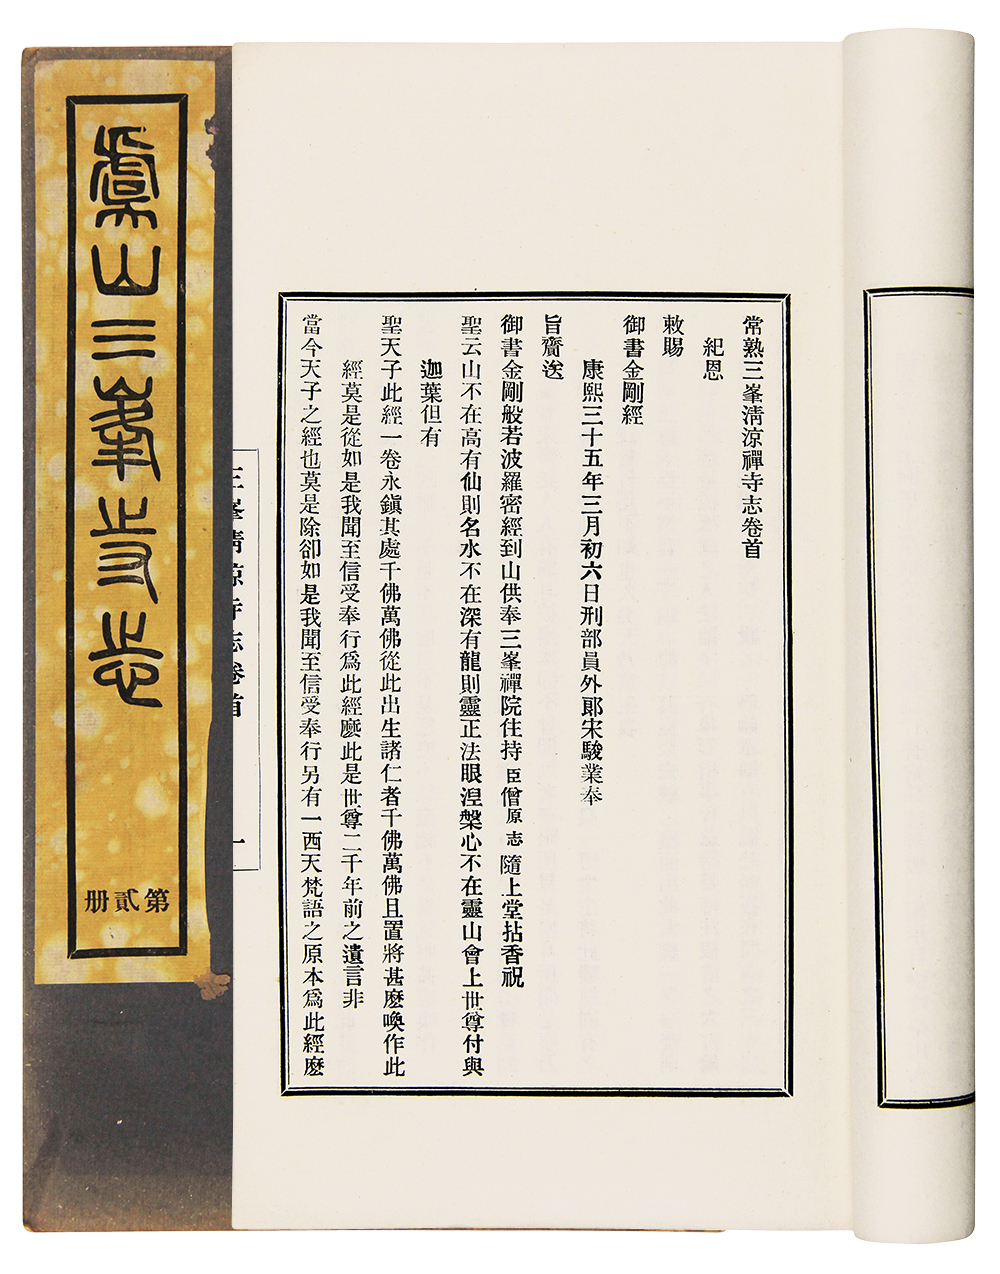 常熟三峯清涼禪寺志卷首
紀恩
敕賜
御書金剛經
康熙三十五年三月初六日刑部員外郞宋駿業奉
旨齎送
御書金剛般若波羅密經到山供奉三峯禪院住持臣僧原志隨上堂拈香祝
聖云山不在高有仙則名水不在深有龍則靈正法眼涅槃心不在靈山會上世尊付與
迦葉但有
聖天子此經一卷永鎭其處千佛萬佛從此出生諸仁者千佛萬佛且置將甚麽喚作此
經莫是從如是我聞至信受奉行爲此經麽此是世尊二千年前之遺言非
當今天子之經也莫是除卻如是我聞至信受奉行另有一西天梵語之原本爲此經麽
三峯清涼寺志卷首
一
虞山三峯寺志
第貳册